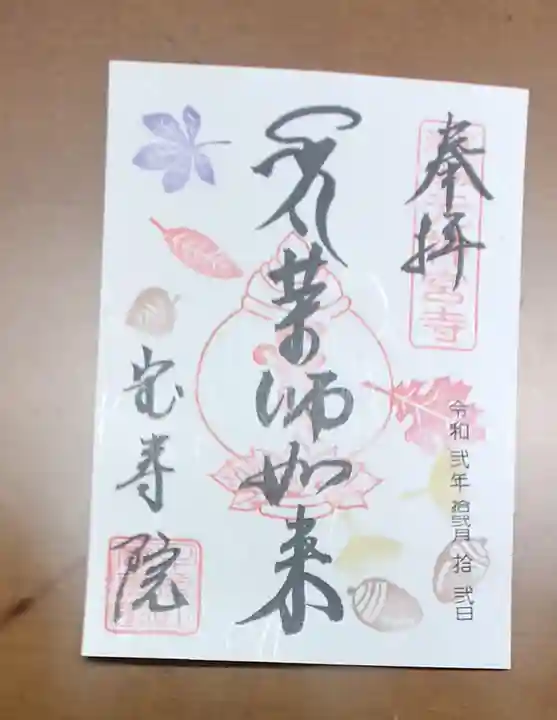 奉拝
令和弐年拾弐月拾弐日
薬師如来
宝寿院